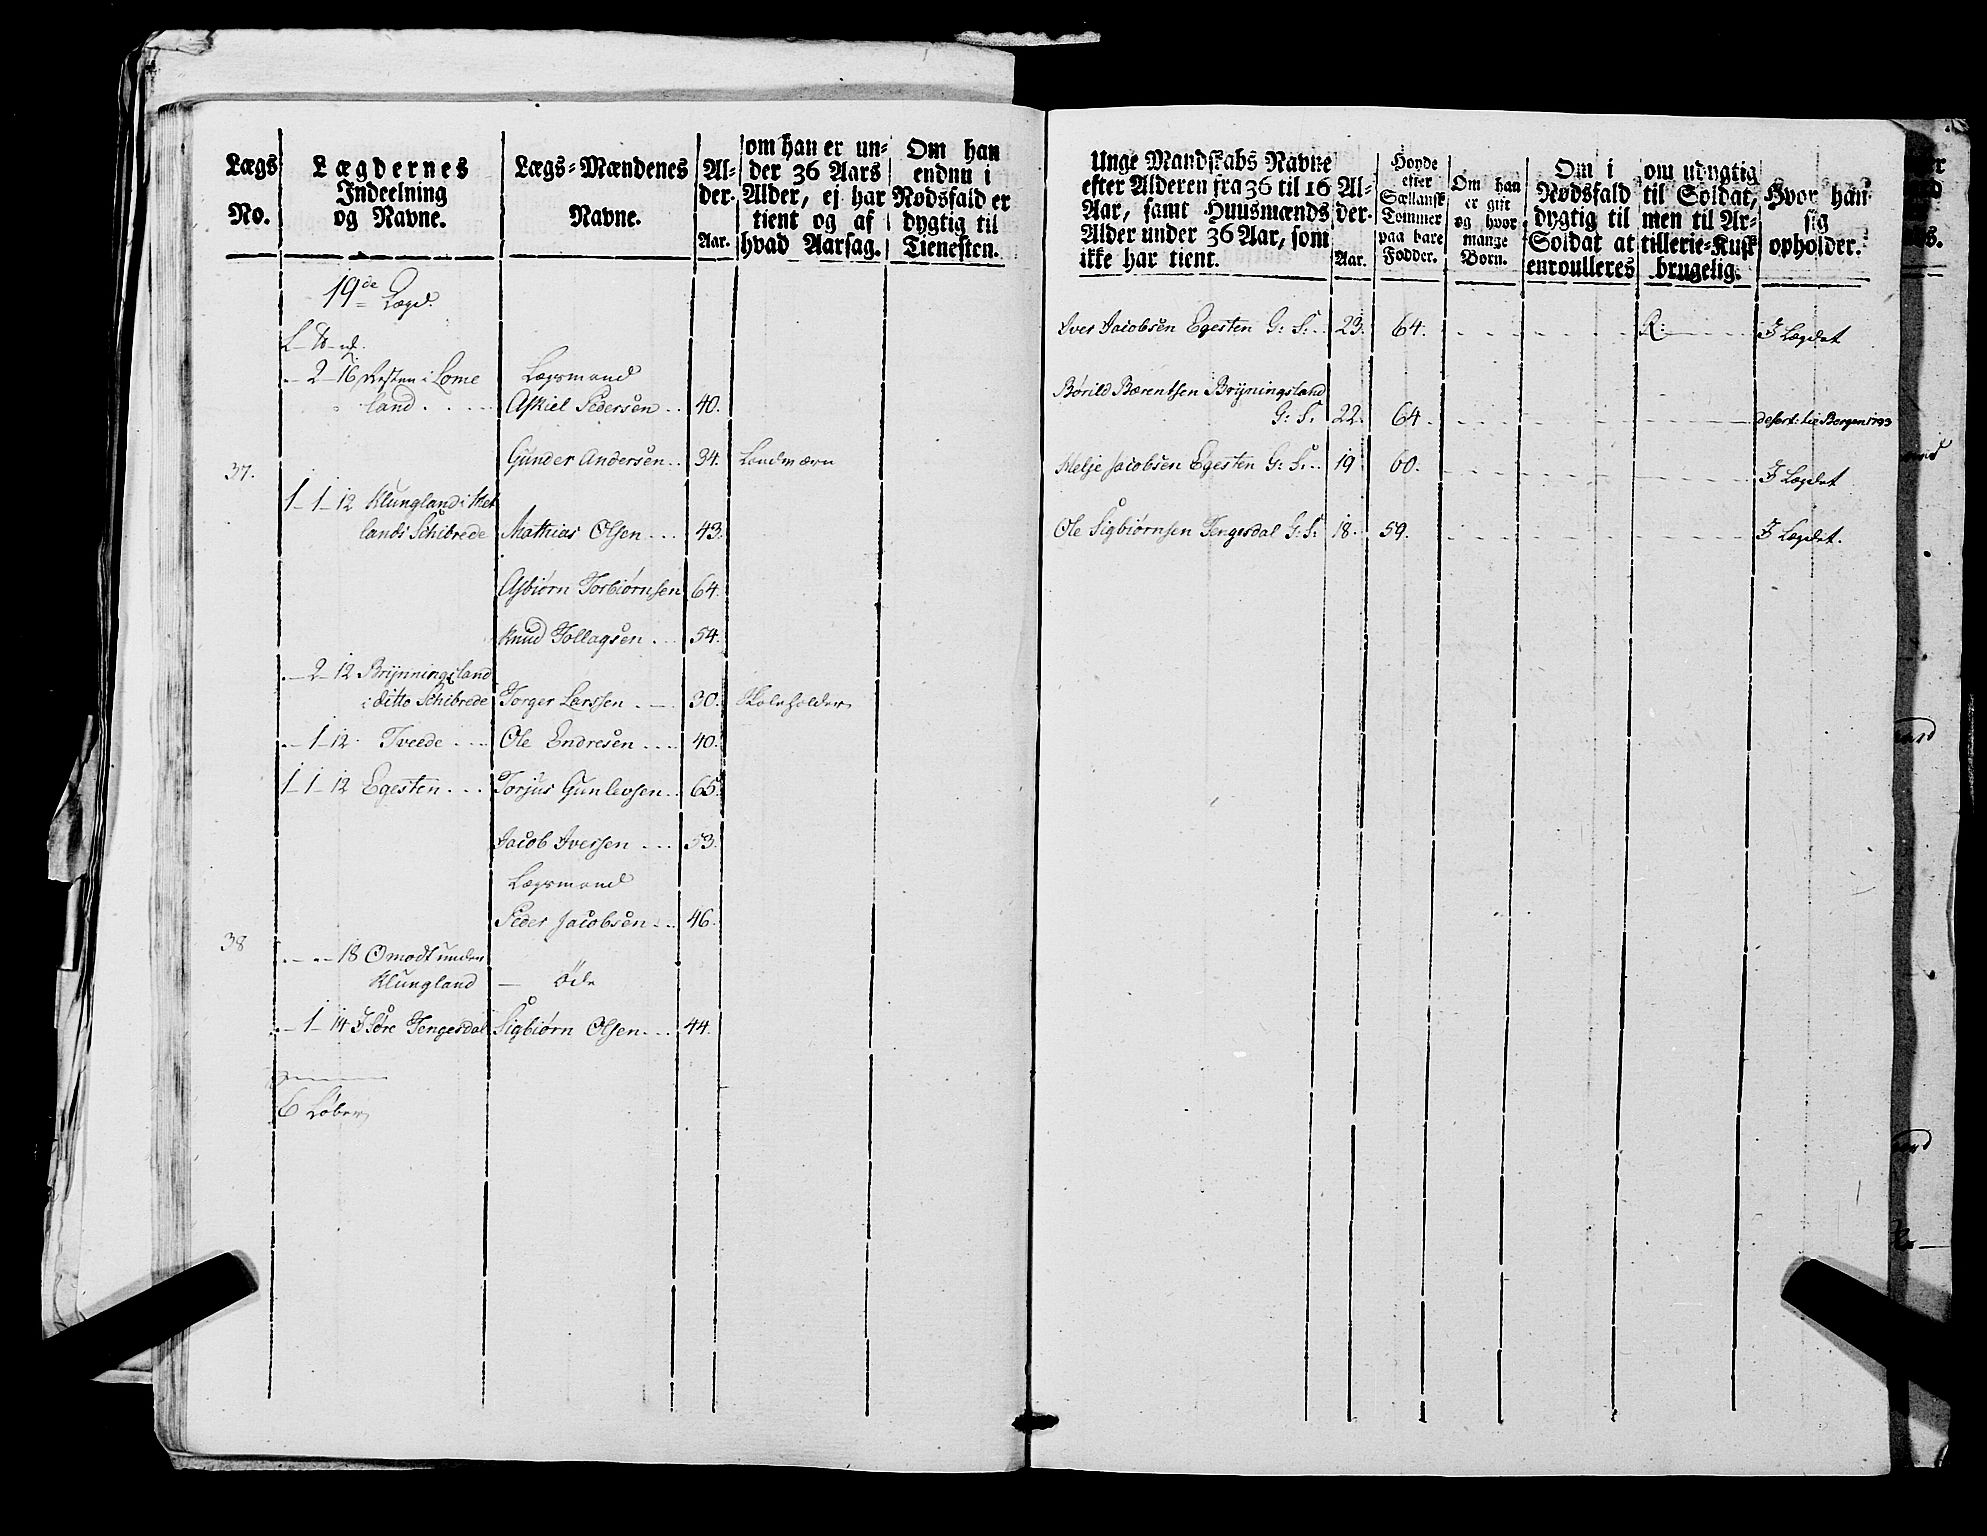 Lægs No.
Lægdernes Indeelning og Navne.
Lægs=Mændenes Navne.
Al=der. Aar.
om han er un=
der 36 Aars
Alder, ej har
tient og af
hvad Aarsag.
Om han
endnu i
Nødsfald er
dygtig til
Tienesten.
19de Lægd.
2 16 Resten i Lome
land . . . .
Lægsmand
Askiel Pedersen . . 40.
Gunder Andersen . . 34. Landværn
37.
1 - 1 - 12 Klungland i Met
lands Schibrede Mathias Olsen . . . 43.
Asbiørn Torbiørnsen 64.
Knud Tollagsen . . . 54.
- 2 - 12 Brynningsland
i ditto Schibrede Torger Larssen . - 30. Skoleholder
- 1 - 12. Tveede . . . Ole Endresen . . . . 40.
1 - 1 - 12 Egesten . . . Torjus Gunlevsen . . 65.
Jacob Iversen . . . 53.
Lægsmand
Peder Jacobsen . . 46.
38
. - . - 18 Omodt under
Klungland - öde
. - 1 - 14 Søre Tengesdal Sigbiørn Olsen . . . 44.
6 Løber
Unge Mandskabs Navne
efter Alderen fra 36 til 16
Aar, samt Huusmænds
Alder under 36 Aar, som
ikke har tient.
Al=
der.
Aar.
Høyde
efter
Sællansk
Tommer
paa bare
Fødder.
Om han
er gift
og hvor
mange
Børn.
Om i
Nødsfald
dygtig til
Soldat at
enroulleres
om udygtig
til Soldat,
men til Ar=
tillerie=Kusk
brugelig.
Hvor han
sig
opholder.
Iver Jacobsen Egesten G: S: . . 23. 64. R: I Lægdet
Børild Bærentsen Brynningsland
G: S. 22. 64 desert: til Bergen 1793
Helje Jacobsen Egesten G: S: . . 19 60. I Lægdet
Ole Sigbiørnsen Tengesdal G: S: 18. 59. I Lægdet.